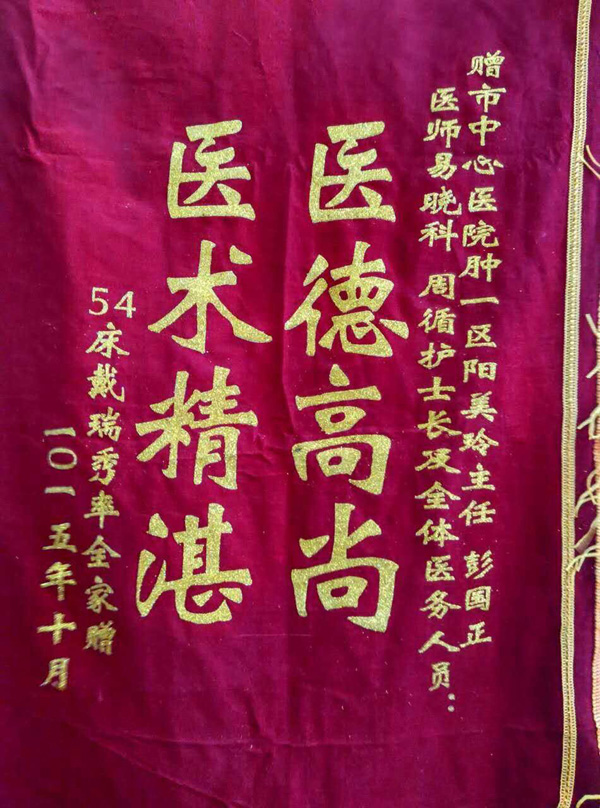 赠市中心医院肿一区阳美玲主任 彭国正
医师易晓科 周循护士长及全体医务人员：
医德高尚
医术精湛
54床戴瑞秀率全家赠
一〇一五年十月